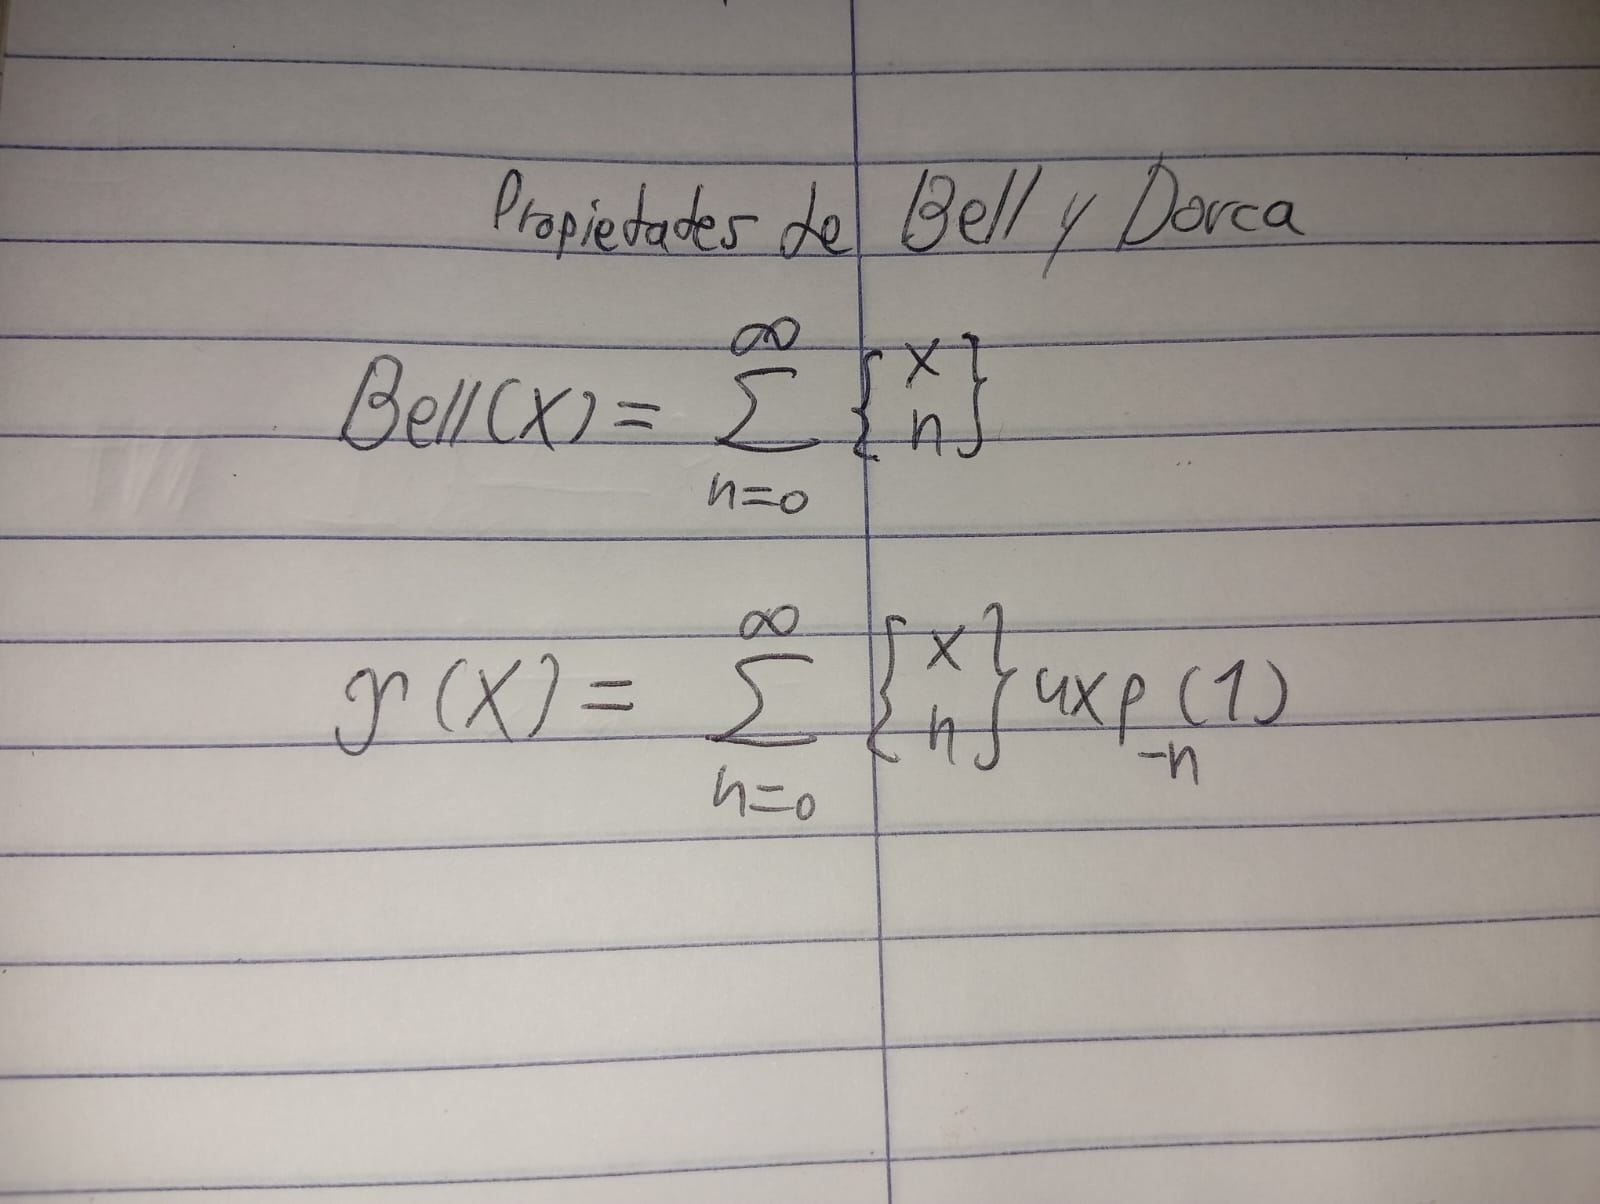 Propiedades de Bell y Dorca
Bell(x) = ∞ Σ n=0 {x n}
γ(x) = ∞ Σ n=0 {x n} uxp -n (1)